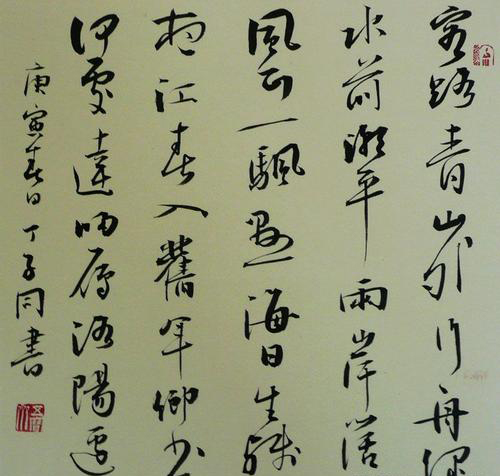 客路青山外行舟緑
水前潮平兩岸闊
風正一颿懸海日生殘
夜江春入舊年鄉書
何處達歸雁洛陽邊
庚寅春日丁子同書